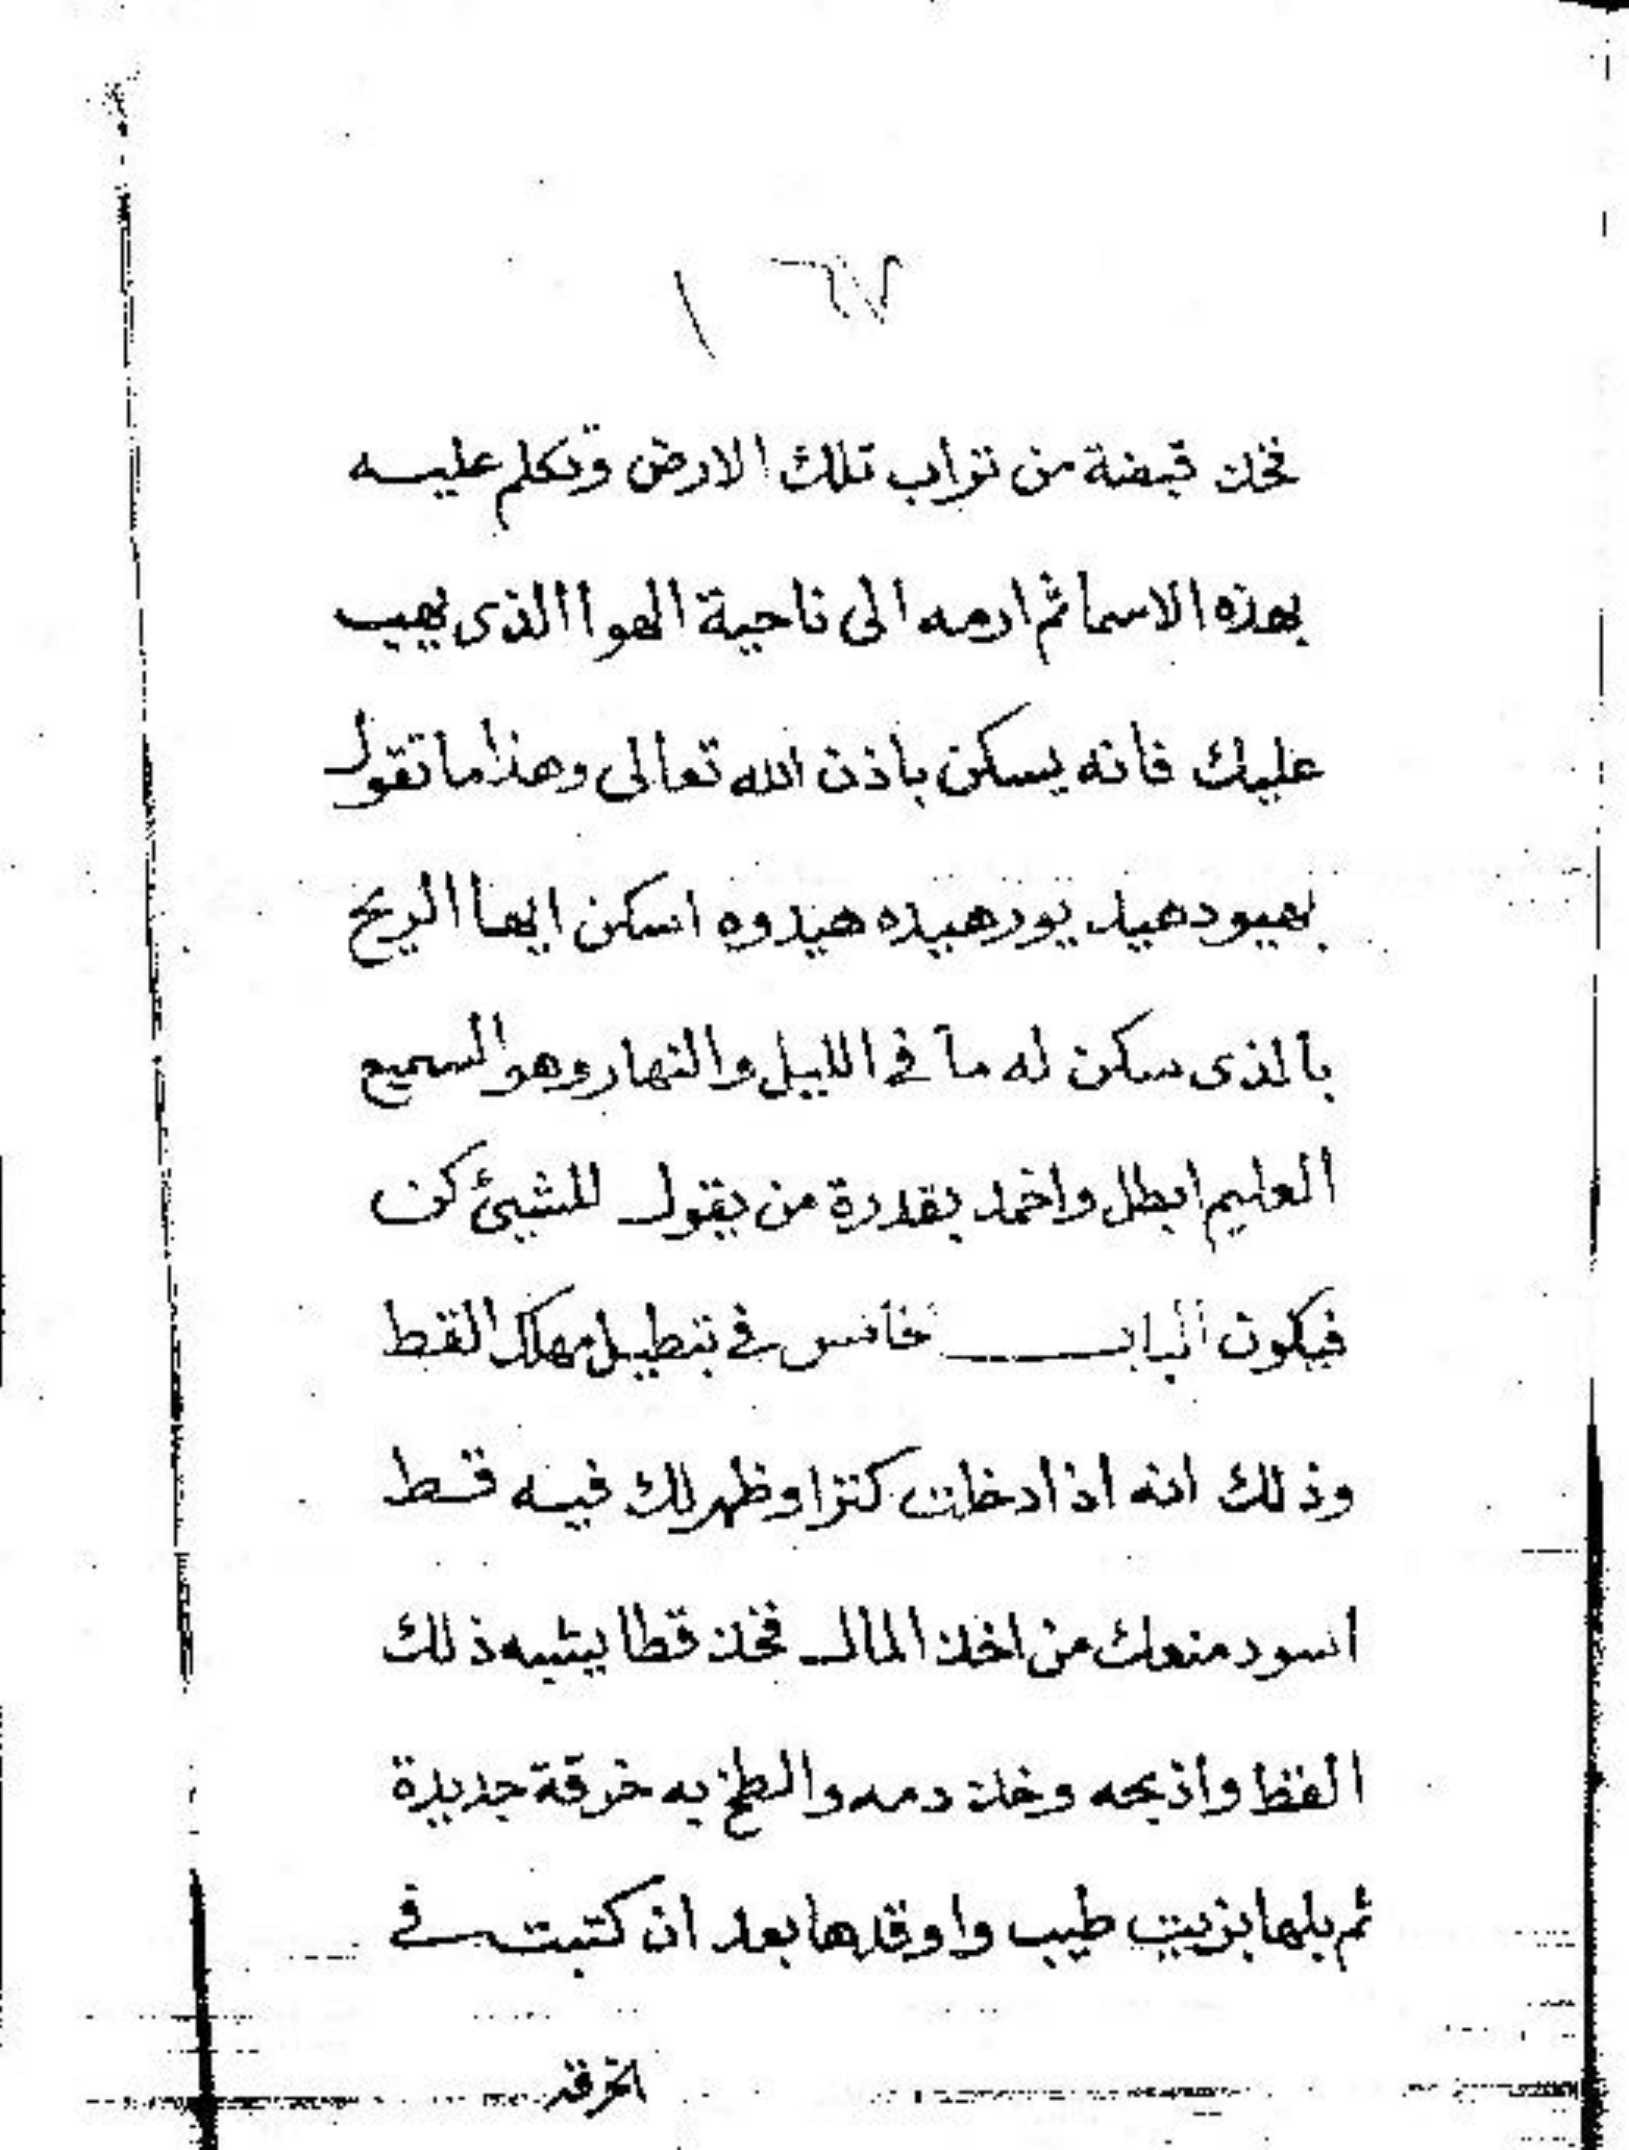 ١٦٧
فخذ قبضة من تراب تلك الارض وتكلم عليه
بهذه الاسما ثم ارمه الى ناحية الهوا الذى يهب
عليك فانه يسكن باذن الله تعالى وهذا ما تقول
بهيود هيد يور هيده هيدوه اسكن ايها الريح
بالذى سكن له ما فى الليل والنهار وهو السميع
العليم ابطل واخمد بقدرة من يقول للشيئ كن
فيكون الباب خامس فى تبطيل مهلك القط
وذلك انه اذا دخلت كنزا وظهر لك فيه قط
اسود منعك من اخذ المال فخذ قطا يشبه ذلك
القط واذبحه وخذ دمه والطخ به خرقة جديدة
ثم بلها بزيت طيب واوقدها بعد ان كتبت فى
الخرقة